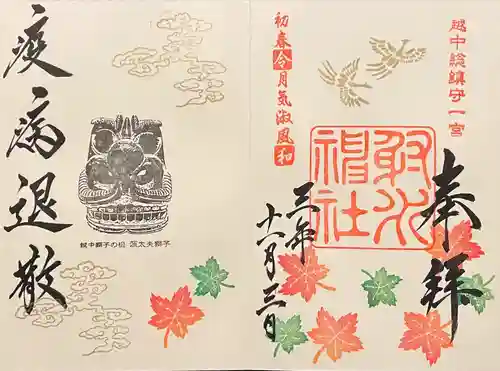 越中総鎮守一宮
奉拝
射水
神社
初春令月気淑風和
三年
十一月三日
疫病退散
越中獅子の祖 筏太夫獅子